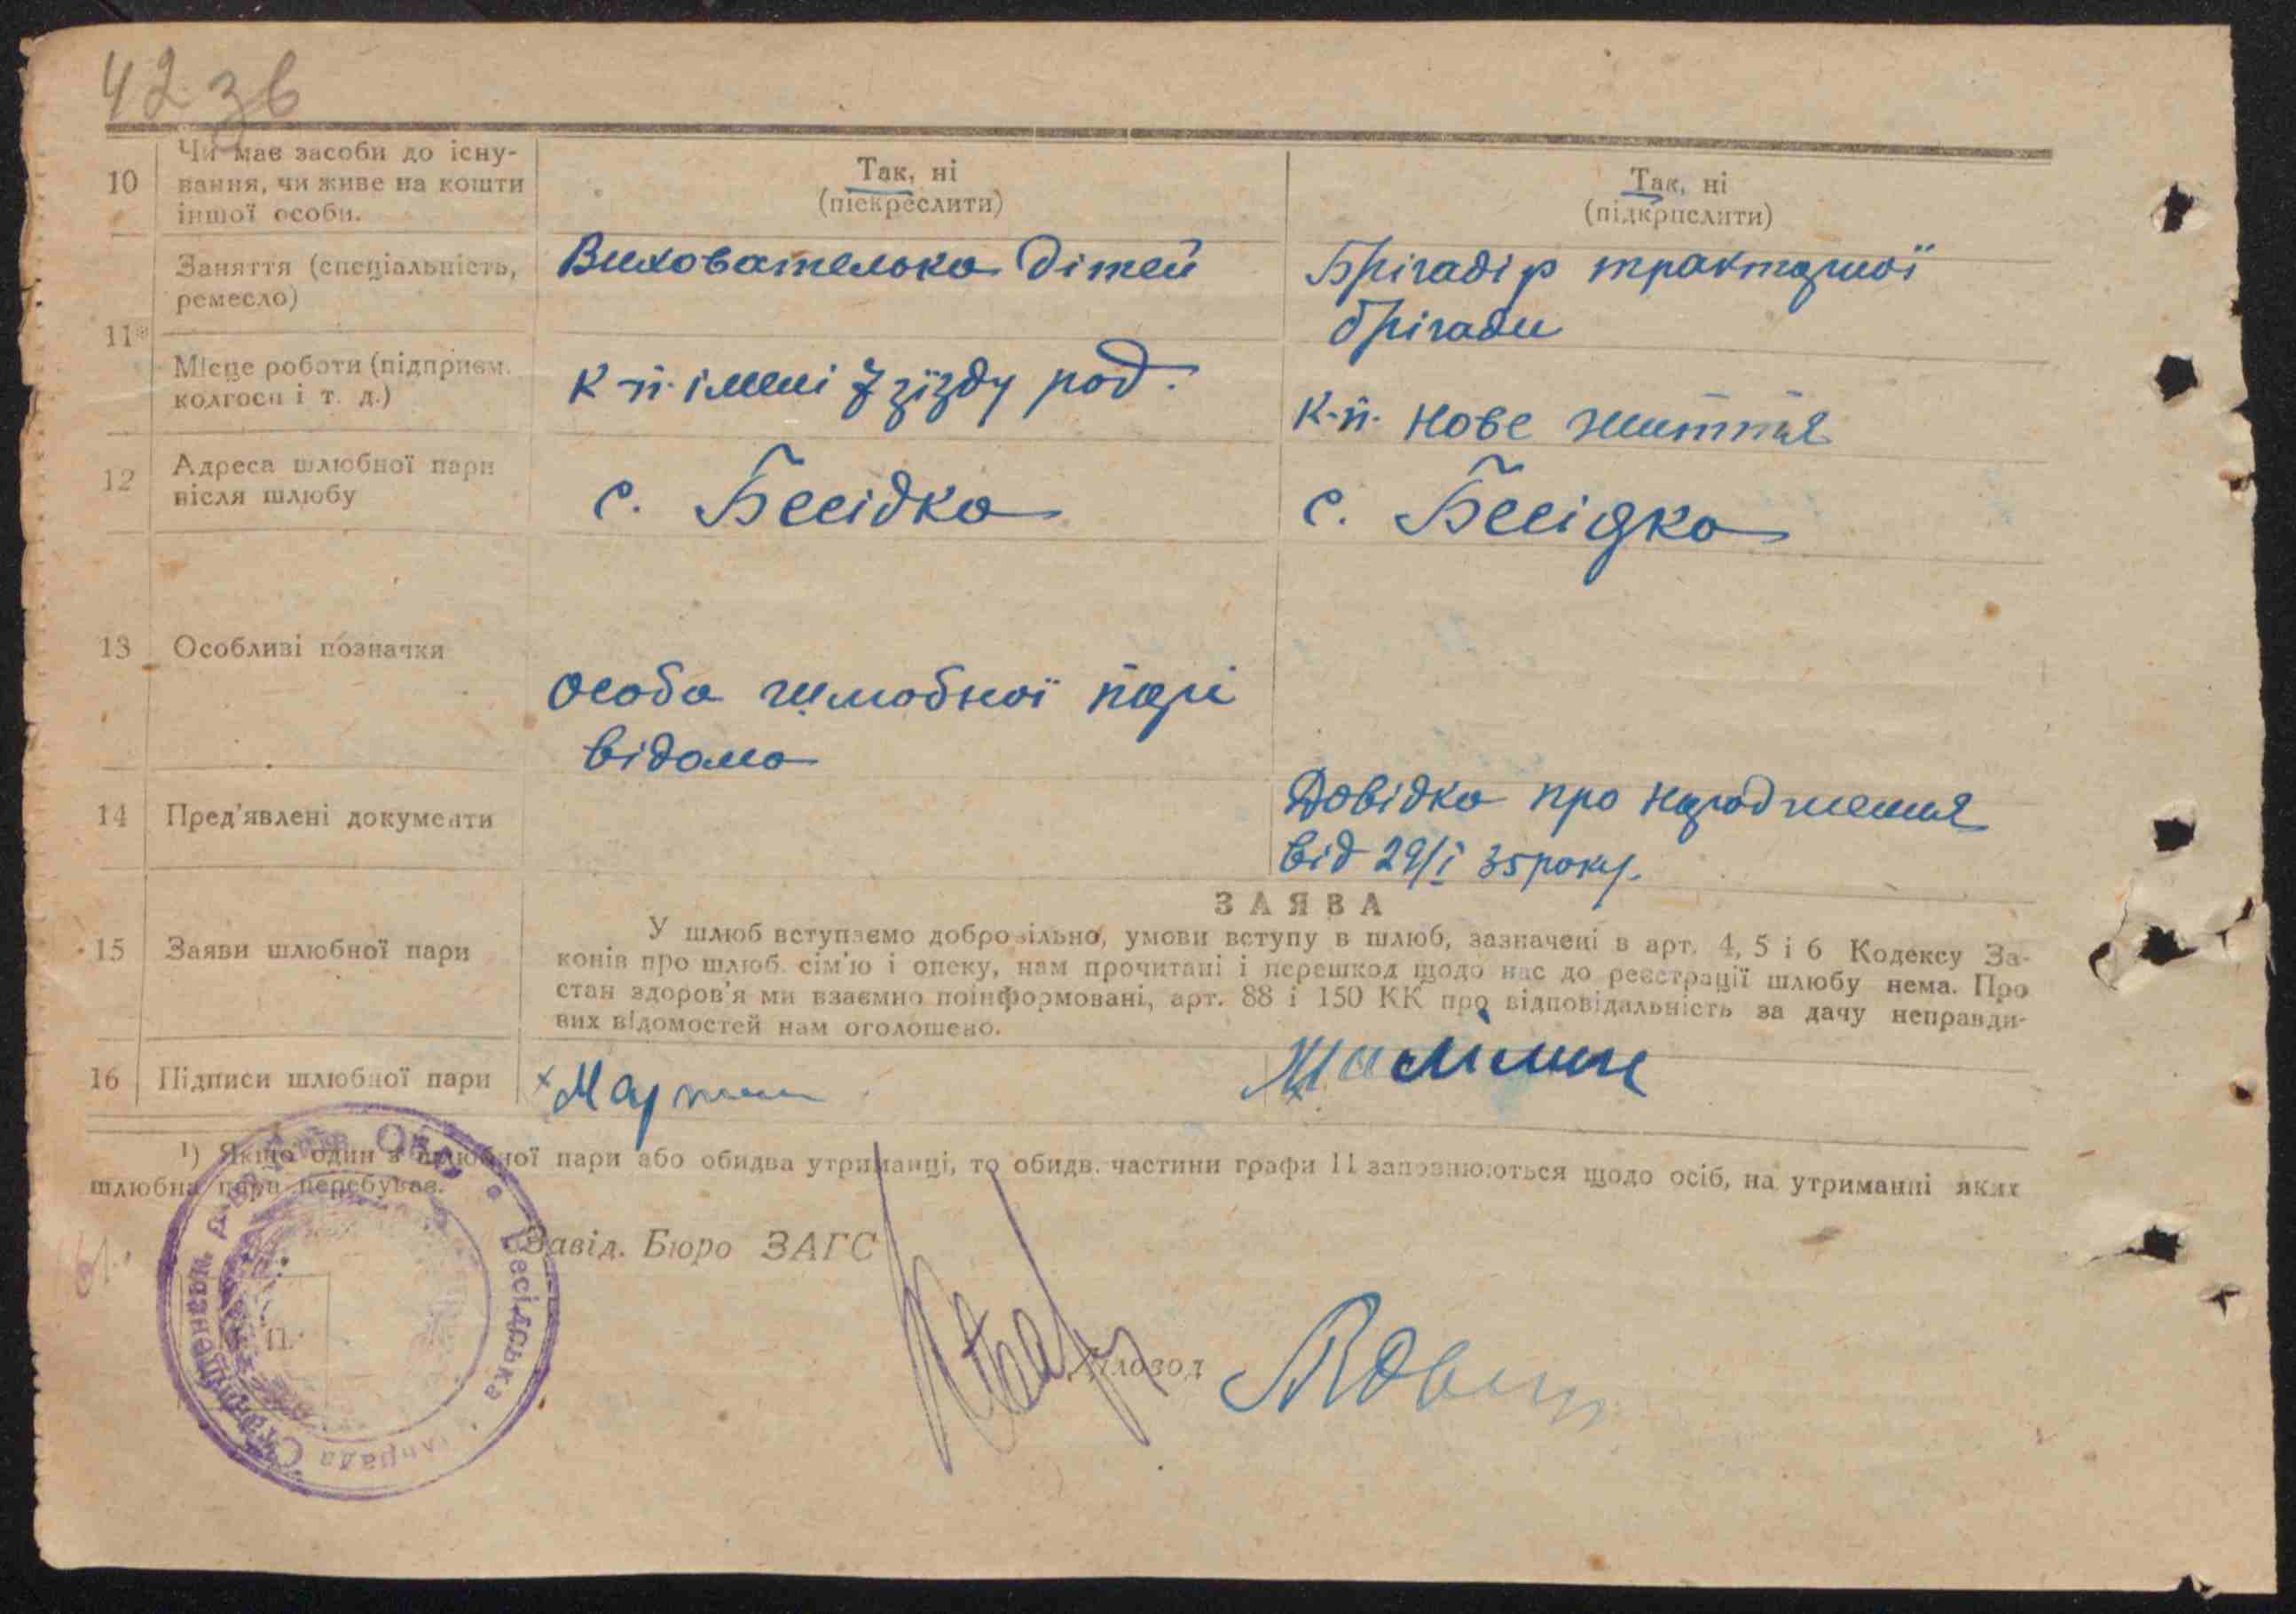 42 зв
10
Чи має засоби до існу-
вання, чи живе на кошти
іншої особи.
Так, ні
(піекреслити)
Так, ні
(підкрпслити)
11*
Заняття (спеціальність,
ремесло)
Вихователька дітей
Брігадір тракторної
брігади
Місце роботи (підприєм.
колгосп і т. д.)
к-п. імені 7 зїзду рад.
к-п. Нове життя
12
Адреса шлюбної пари
після шлюбу
с. Бесідка
с. Бесідка
13
Особливі позначки
особа шлюбної парі
відома
14
Пред'явлені документи
Довідка про народження
від 29/I 35 року.
15
Заяви шлюбної пари
ЗАЯВА
У шлюб вступаємо добровільно, умови вступу в шлюб, зазначені в арт. 4, 5 і 6 Кодексу За-
конів про шлюб. сім'ю і опеку, нам прочитані і перешкод щодо нас до реєстрації шлюбу нема. Про
стан здоров'я ми взаємно поінформовані, арт. 88 і 150 КК про відповідальність за дачу неправди-
вих відомостей нам оголошено.
16
Підписи шлюбної пари
¹) Якщо один з шлюбної пари або обидва утриманці, то обидв. частини графи 11 заповнюються щодо осіб, на утриманні яких
шлюбна пара перебуває.
Завід. Бюро ЗАГС
П.
Діловод
Бесідська